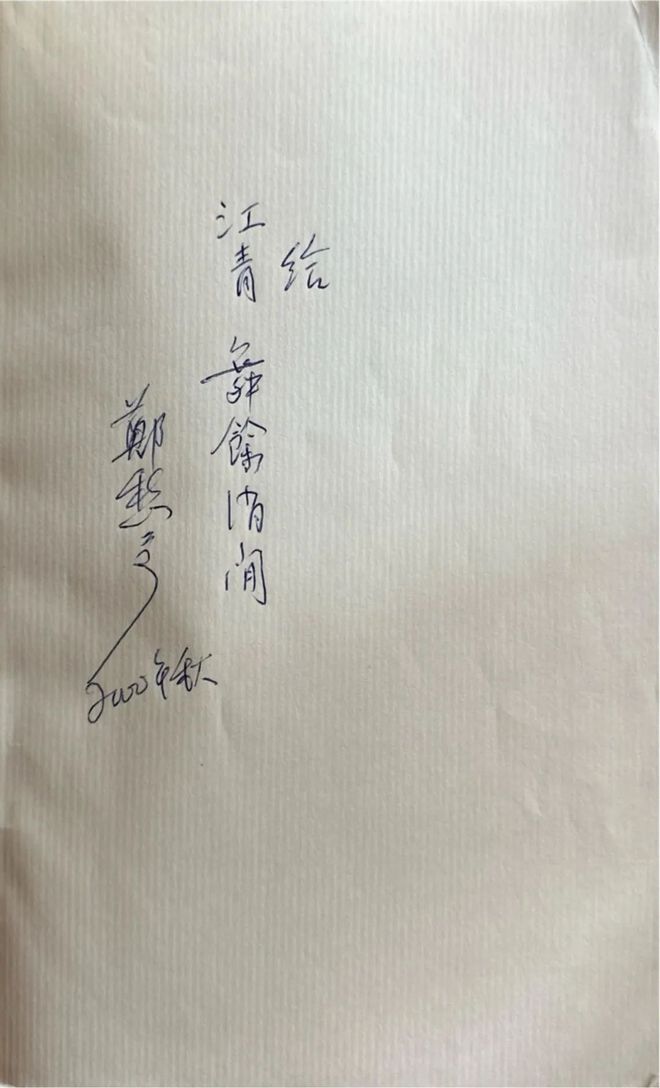 给
江青 舞餘消閒
鄭愁予
2000年秋